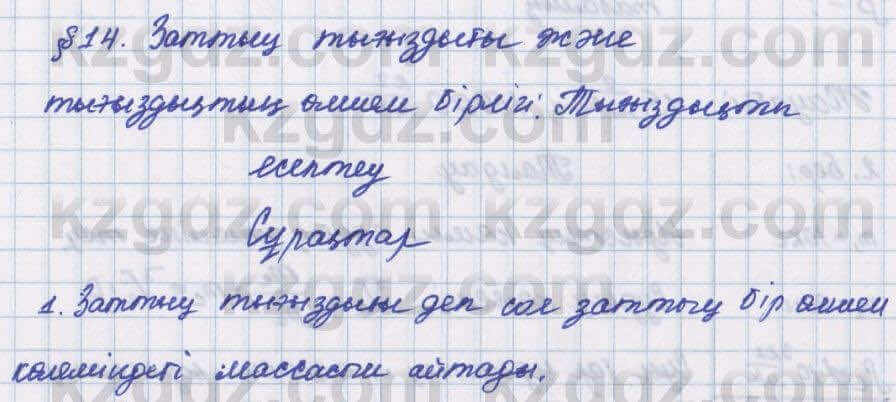 §14. Заттың тығыздығы және
тығыздықтың өлшем бірлігі. Тығыздықты
есептеу
Сұрақтар
1. Заттың тығыздығы деп сол заттың бір өлшем
көлеміндегі массасын айтады.
kzgdz.com